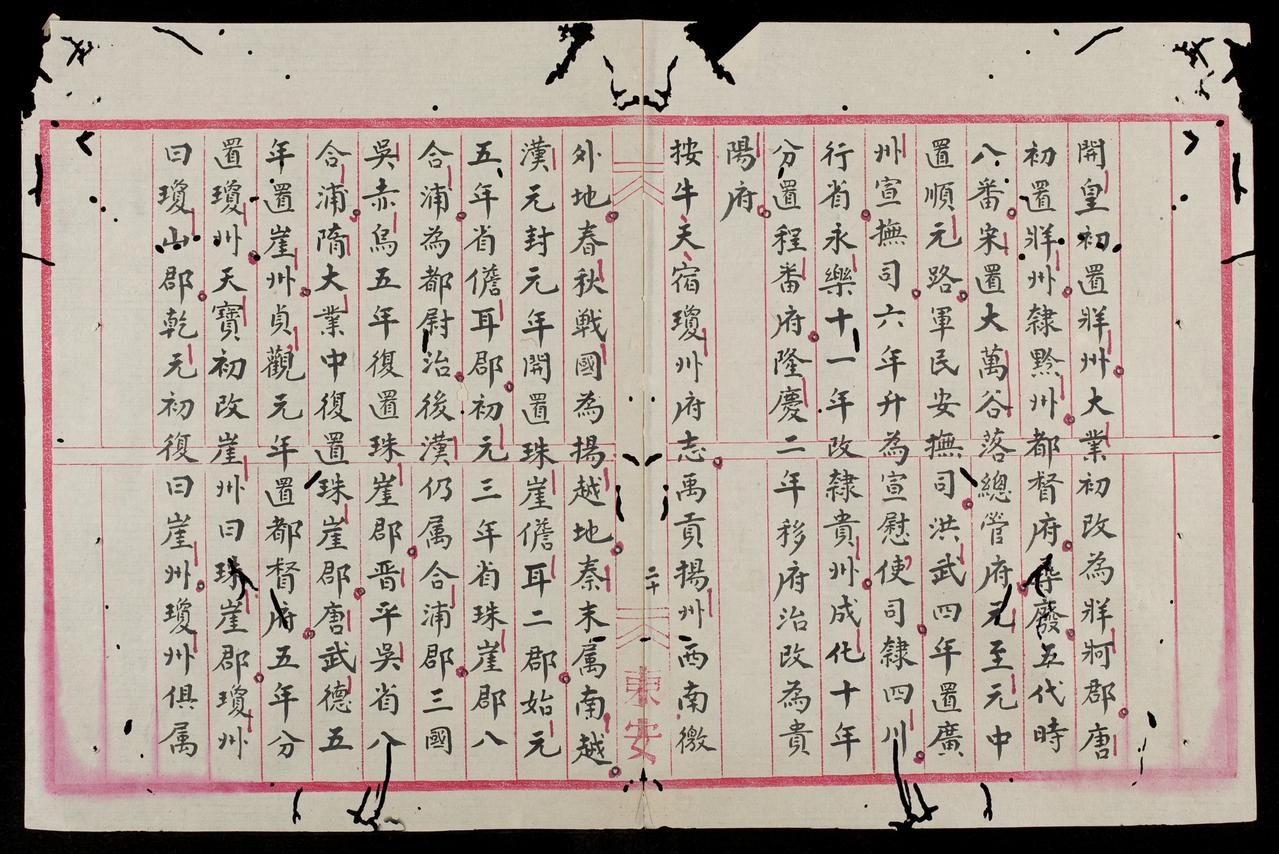 開皇初置牂州大業初改為牂牁郡唐
初置牂州隸黔州都督府尋廢五代時
八番宋置大萬谷落總管府元至元中
置順元路軍民安撫司洪武四年置廣
州宣撫司六年升為宣慰使司隸四川
行省永樂十一年改隸貴州成化十年
分置程番府隆慶二年移府治改為貴
陽府
按牛天宿瓊州府志禹貢揚州西南徼
二十
東安
外地春秋戰國為揚越地秦末属南越
漢元封元年開置珠崖儋耳二郡始元
五年省儋耳郡初元三年省珠崖郡八
合浦為都尉治後漢仍属合浦郡三國
吳赤烏五年復置珠崖郡晋平吳省八
合浦隋大業中復置珠崖郡唐武德五
年置崖州貞觀元年置都督府五年分
置瓊州天寶初改崖州曰珠崖郡瓊州
曰瓊山郡乾元初復曰崖州瓊州俱属